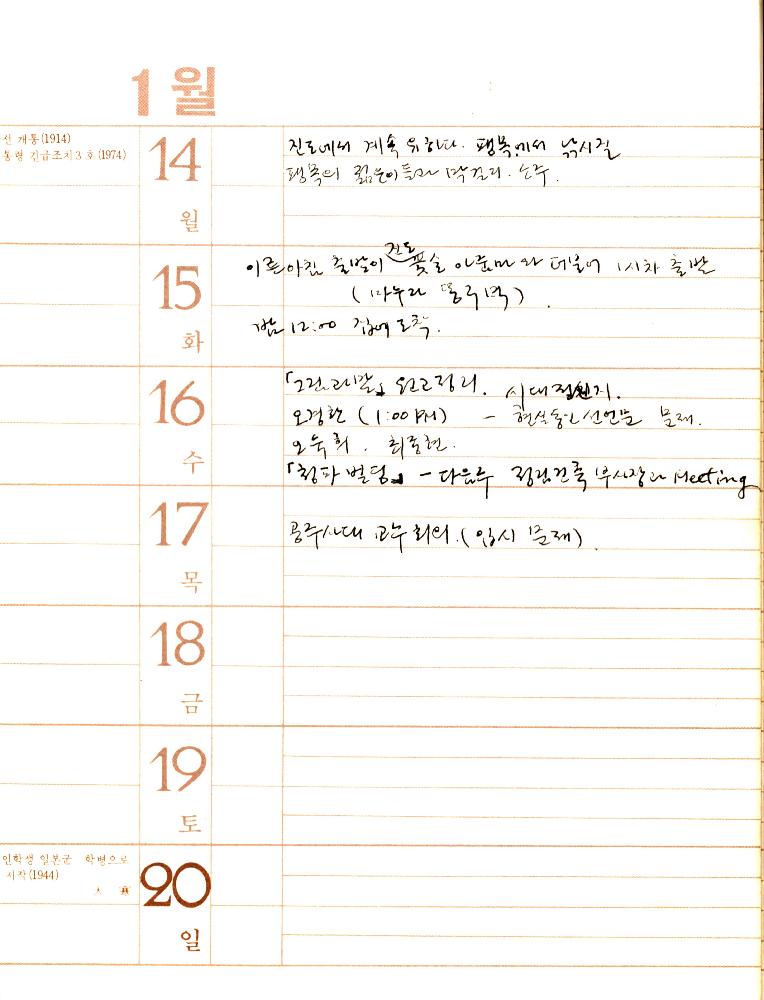 1월
선 개통(1914)
통령 긴급조치3호(1974)
14
월
진도에서 계속 유하다. 팽목에서 낚시질
팽목의 젊은이들과 막걸리. 소주.
15
화
진도
이른아침 출발이 아줌마와 더불어 1시차 출발
(마누라 동무 )
밤 12:00 집에 도착.
16
수
「그런 」 원고정리.
(1:00 PM) — 현실동인 선언문 문제.
오윤 희. 최종현.
「청파빌딩」 — 다음주 정림건축 부사장과 Meeting
17
목
공주사대 교수회의. (입시 문제).
18
금
19
토
인학생 일본군 학병으로
시작(1944)
大寒
20
일